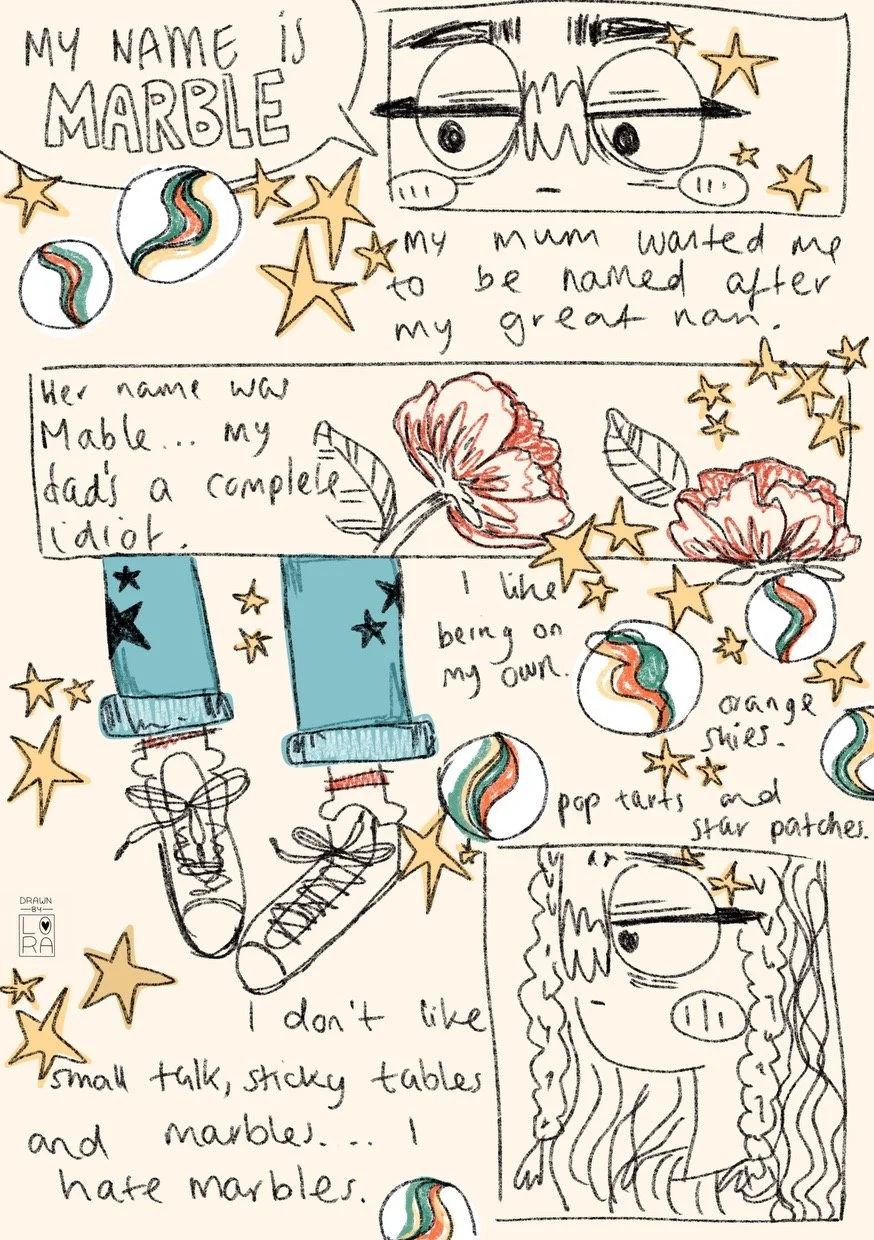 MY NAME IS
MARBLE
My mum wanted me
to be named after
my great nan.
Her name was
Mable... my
dad's a complete
idiot.
I like
being on
my own.
orange
skies.
pop tarts and
star patches.
DRAWN
BY
LO
RA
I don't like
small talk, sticky tables
and marbles.... I
hate marbles.